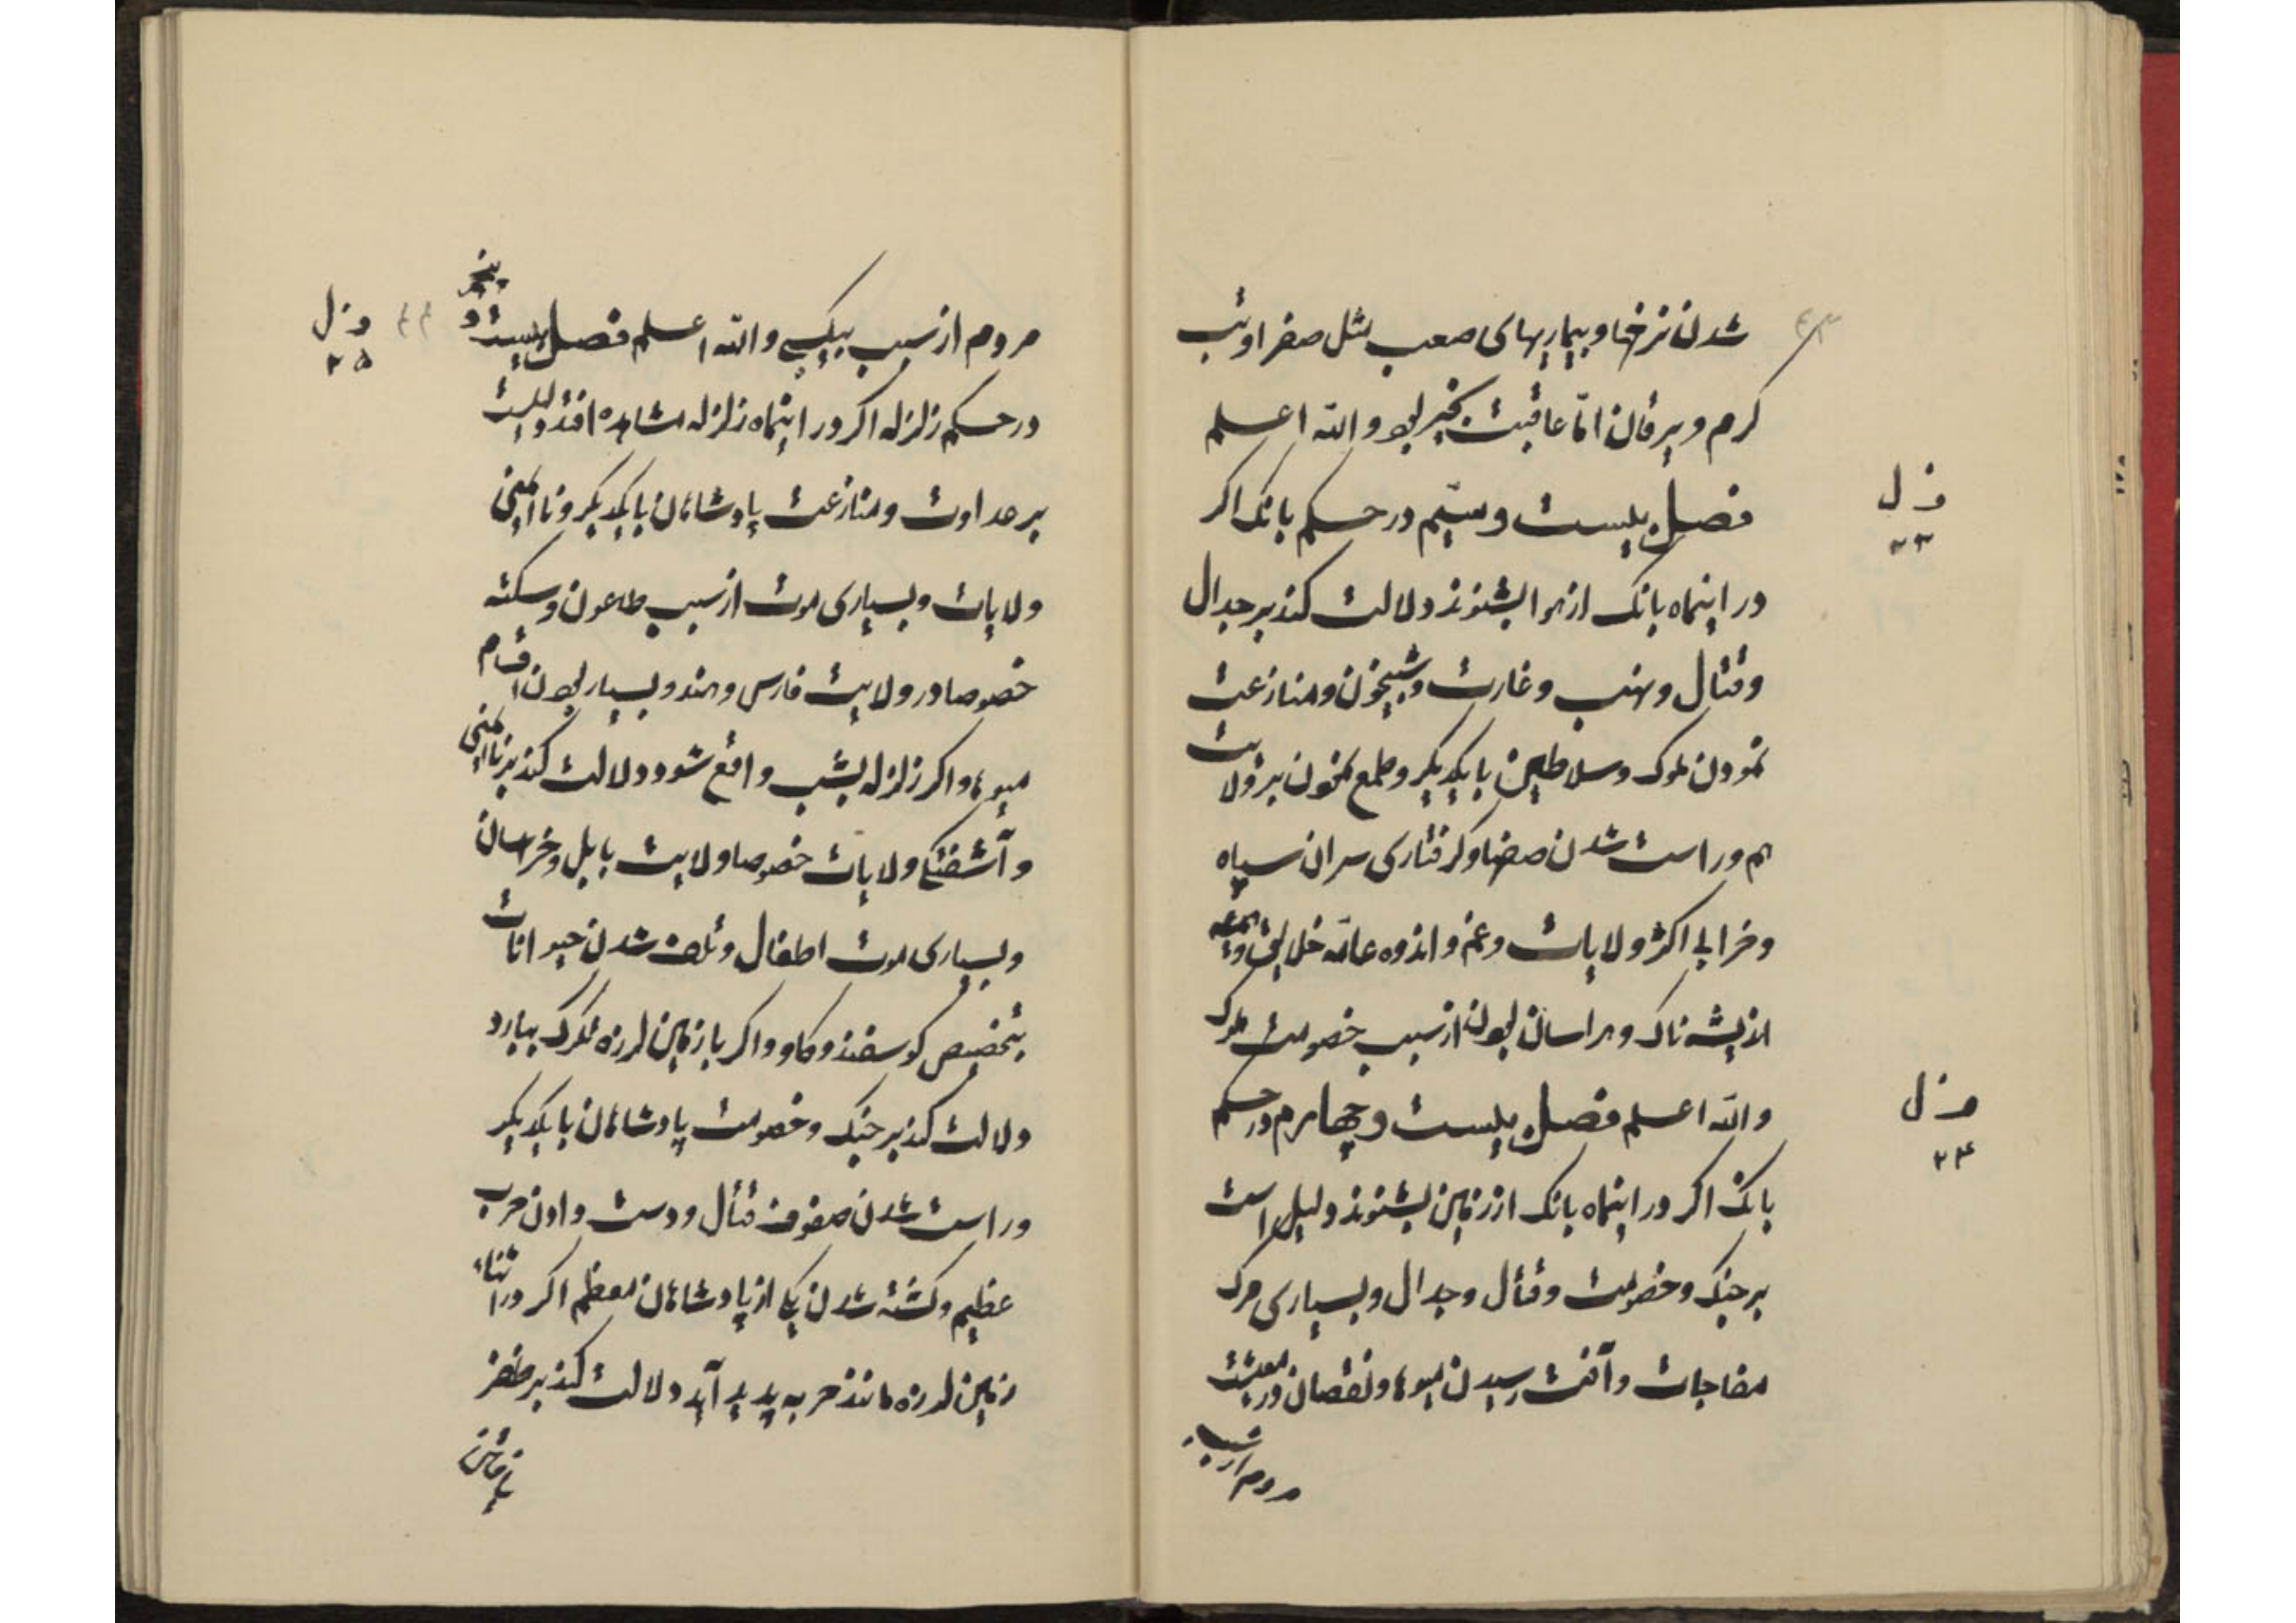 ۴۳
شدن نرخها و بیماریهای صعب مثل صفرا و تب
کرم و یرقان امّا عاقبت بخیر بود والله اعلم
ف ل ۲۳
فصل بیست و سیّم در حکم بانک اکر
در اینماه بانک از هوا بشنوند دلالت کند بر جدال
و قتال و نهب و غارت و شبیخون و منازعت
نمودن ملوک و سلاطین با یکدیکر و طمع نمودن بر ولایت
هم و راست شدن صفها و کرفتاری سران سپاه
و خرابی اکثر ولایات و غم و اندوه عامّه خلایق و همه
اندیشه ناک و هراسان بودن از سبب خصومت ملوک
ف ل ۲۴
والله اعلم فصل بیست و چهارم در حکم
بانک اکر در اینماه بانک از زمین بشنوند دلیل است
بر جنک و خصومت و قتال و جدال و بسیاری مرک
مفاجات و آفت رسیدن میوها و نقصان در معیشت
مردم از سبب
۴۴
ف ل ۲۵
مردم از سبب والله اعلم فصل بیست و پنجم
در حکم زلزله اکر در اینماه زلزله مشاهده افتد دلیلست
بر عداوت و منازعت پادشاهان با یکدیکر و نا ایمنی
ولایات و بسیاری موت از سبب طاعون و سکته
خصوصا در ولایت فارس و هند و بسیار بودن اقسام
میوها و اکر زلزله بشب واقع شود دلالت کند بر نا ایمنی
و آشفتکی ولایات خصوصا ولایت بابل و خراسان
و بسیاری موت اطفال و تلف شدن حیوانات
بتخصیص کوسفند و کاو و اکر با زمین لرزه تکرک ببارد
دلالت کند بر جنک و خصومت پادشاهان با یکدیکر
و راست شدن صفوف قتال و دست دادن حرب
عظیم و کشته شدن یکی از پادشاهان معظم اکر در اثناء
زمین لرزه مانند حربه پدید آید دلالت کند بر ظفر
یافتن